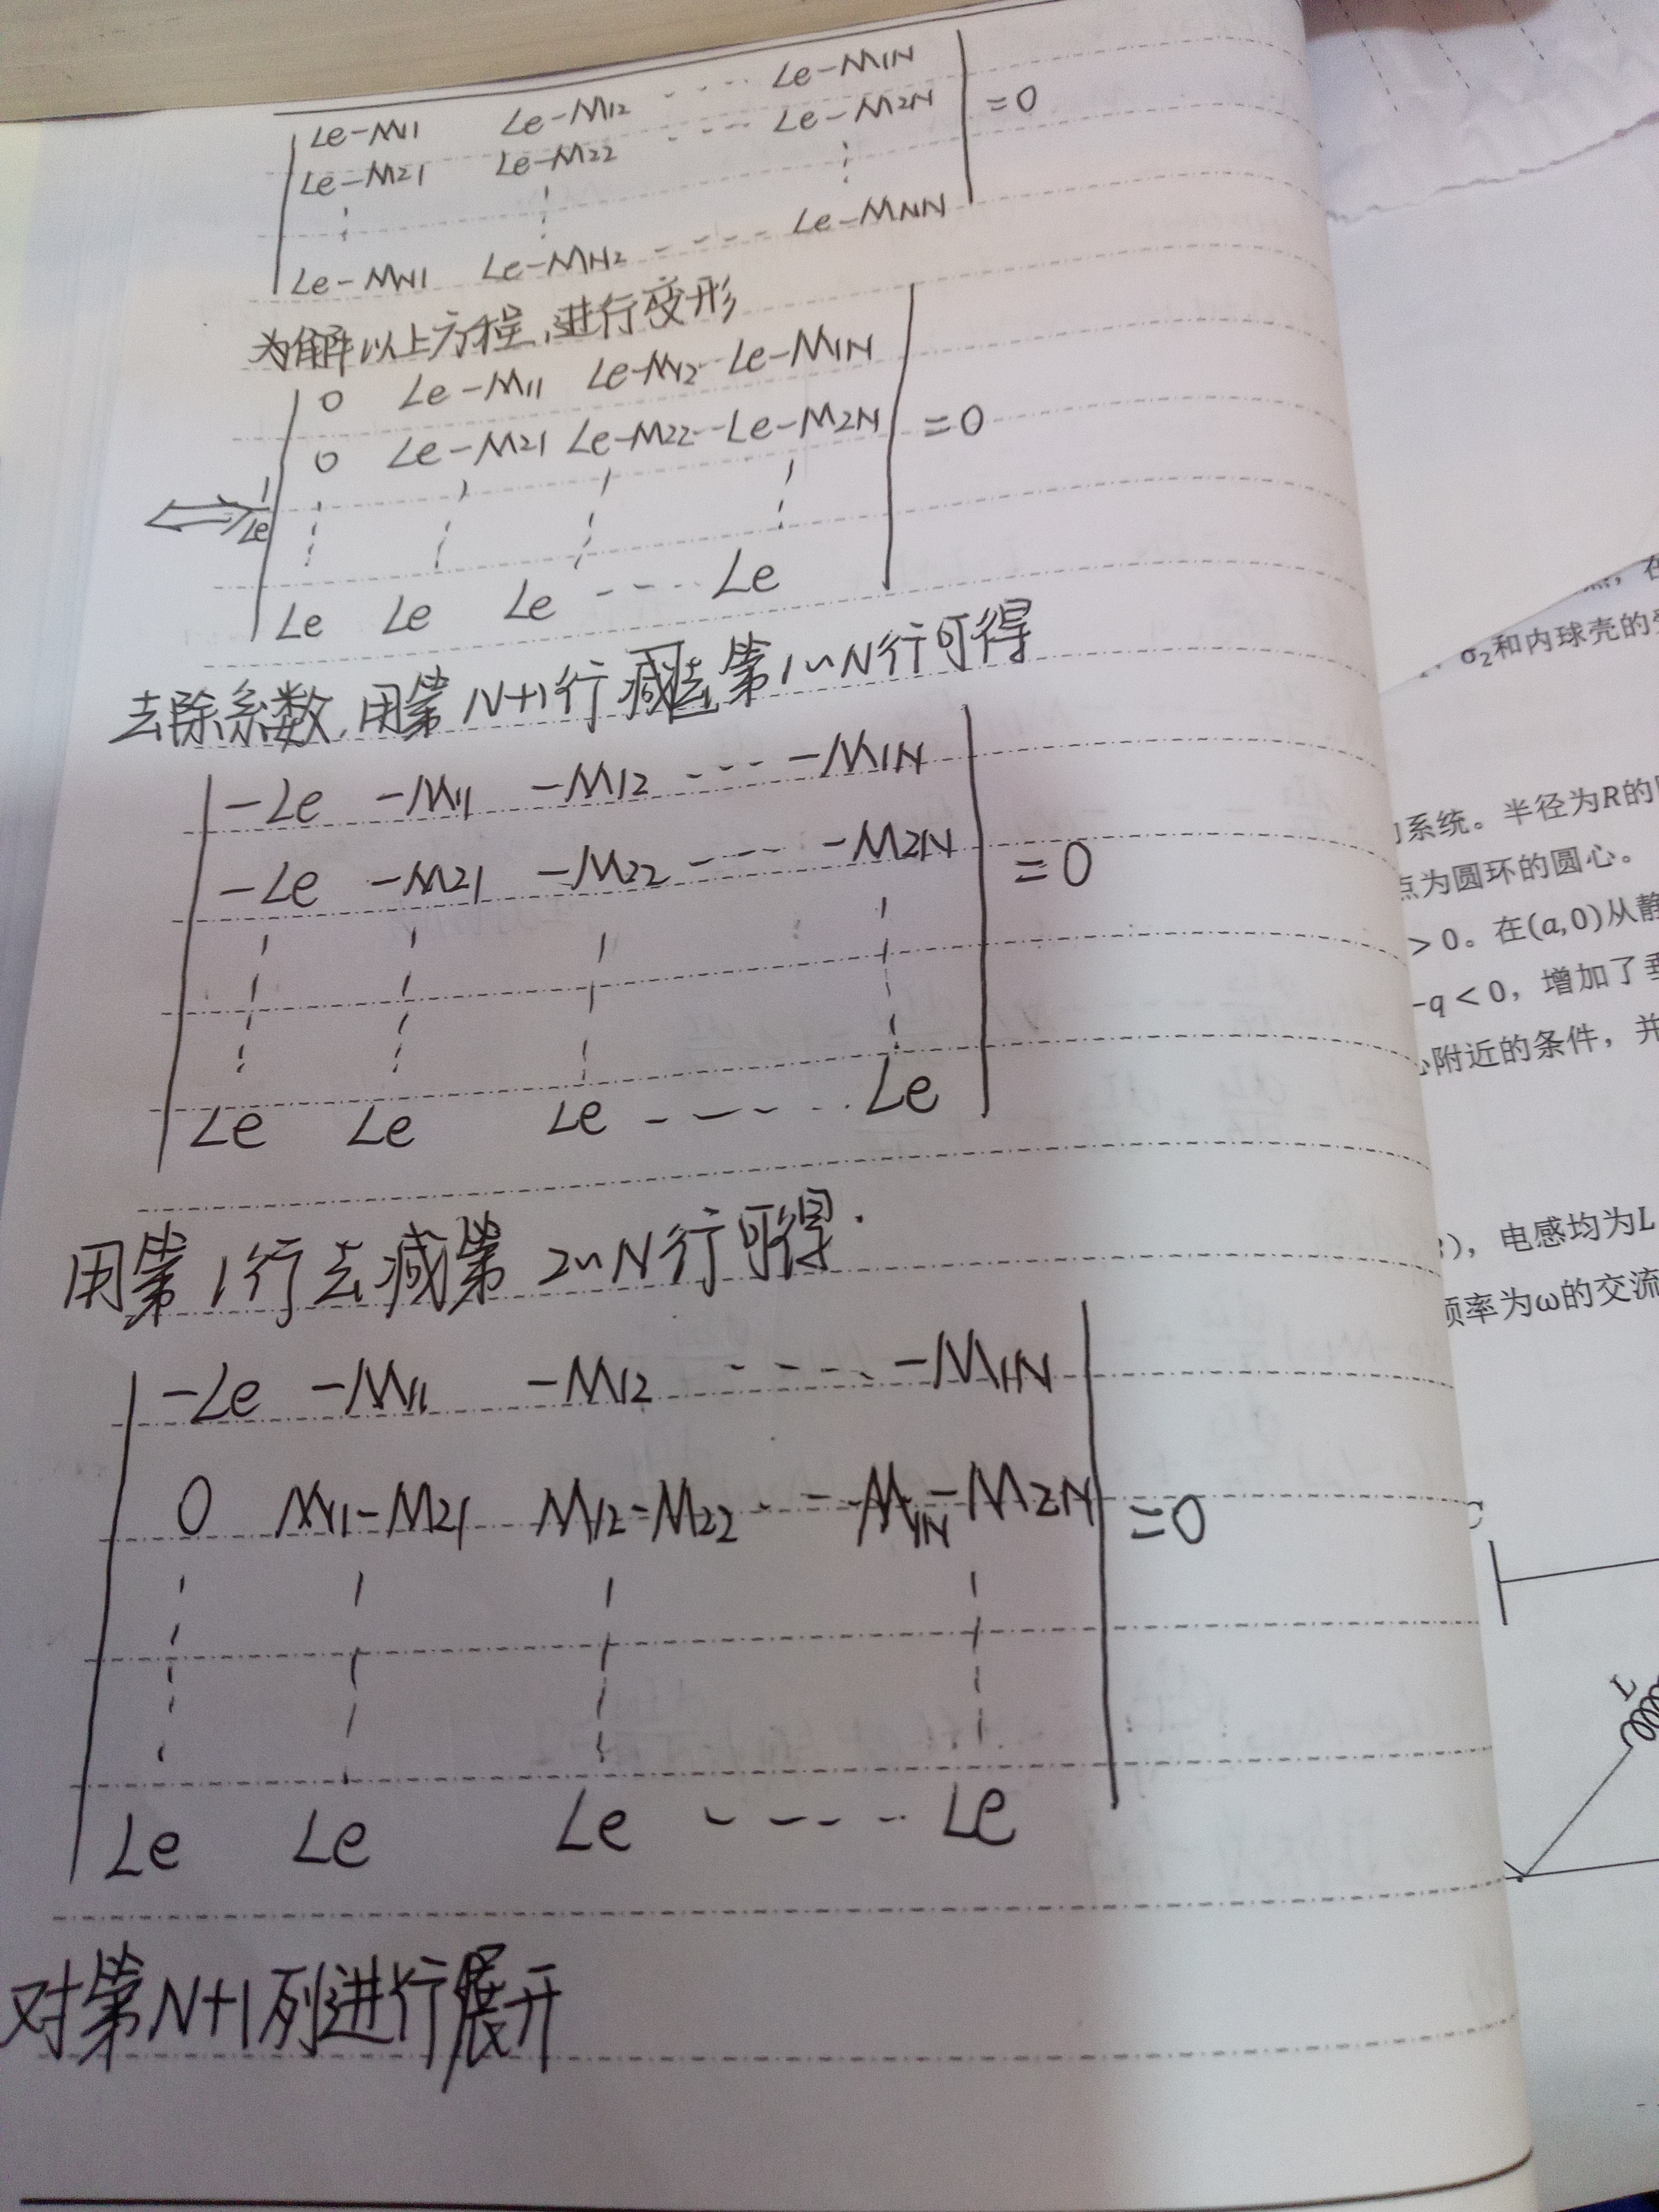 Le-M11 Le-M12 ---- Le-M1N
Le-M21 Le-M22 ---- Le-M2N =0
Le-MN1 Le-MN2 ---- Le-MNN
为解以上方程,进行变形
0 Le-M11 Le-M12 -- Le-M1N
0 Le-M21 Le-M22 -- Le-M2N =0
⟺ 1/Le
Le Le Le ---- Le
去除系数,用第N+1行减去第1~N行可得
-Le -M11 -M12 ---- -M1N
-Le -M21 -M22 ---- -M2N =0
Le Le Le ---- Le
用第1行去减第2~N行可得.
-Le -M11 -M12 ---- -M1N
0 M11-M21 M12-M22 --- M1N-M2N =0
Le Le Le ---- Le
对第N+1列进行展开
σ2和内球壳的
系统。半径为R的
点为圆环的圆心。
>0。在(a,0)从静
-q<0，增加了垂
附近的条件，并
)，电感均为L
频率为ω的交流
L